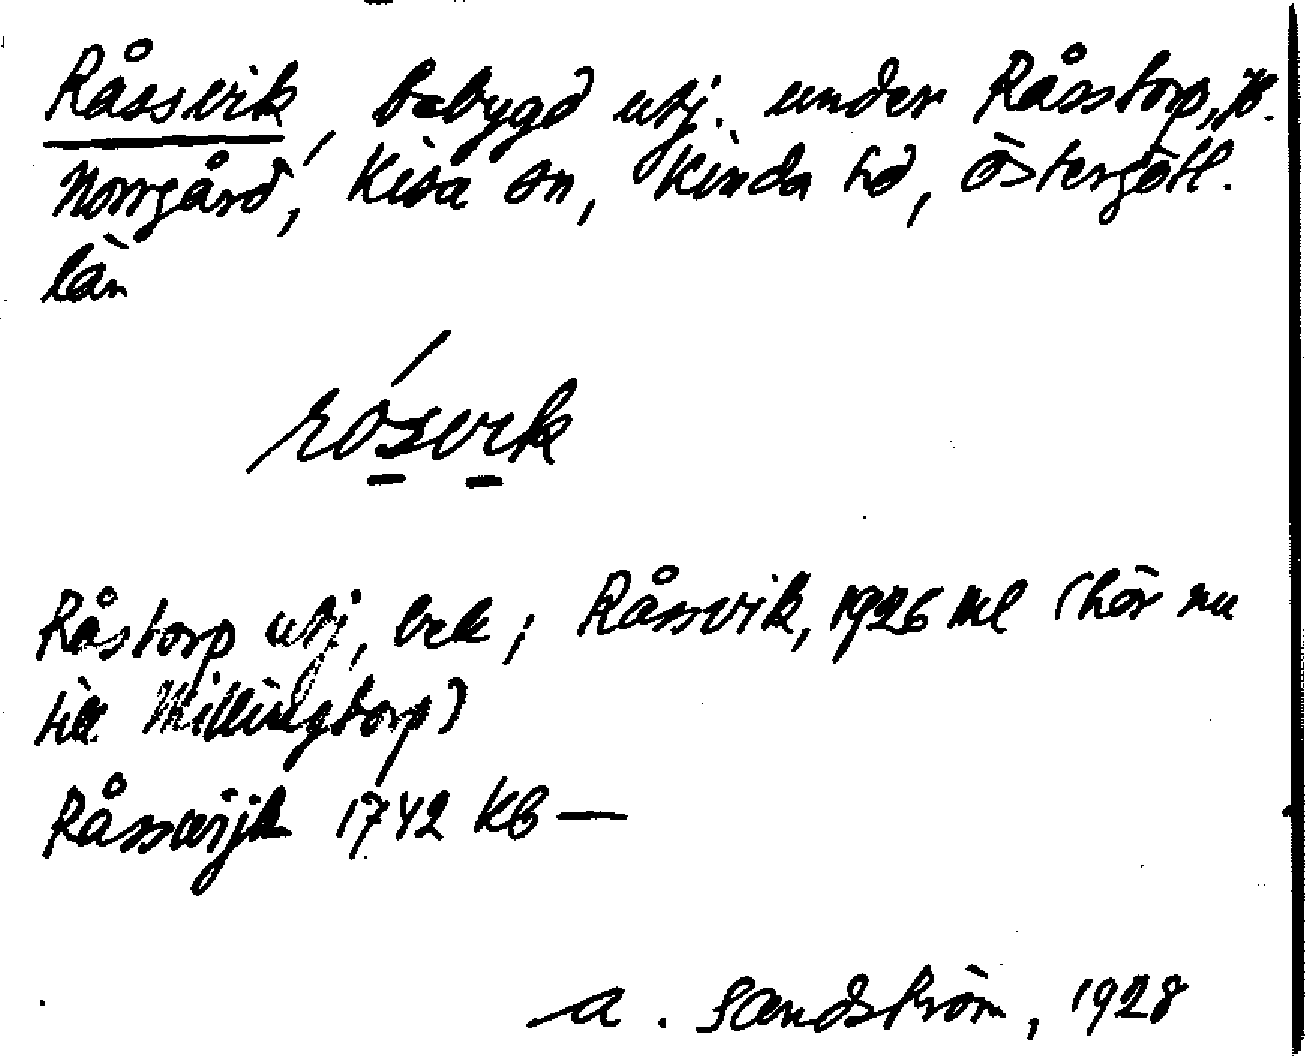 Råssvik, bebygd utj. under Råsstorp,
Norrgård, Kisa sn, Kinda hd, Östergötl.
län
rósvik
Råstorp utj, bek; Råssvik, 1926 ml (hör nu
till Millingtorp)
Råsswijk 1742 KB —
A. Sandström, 1928